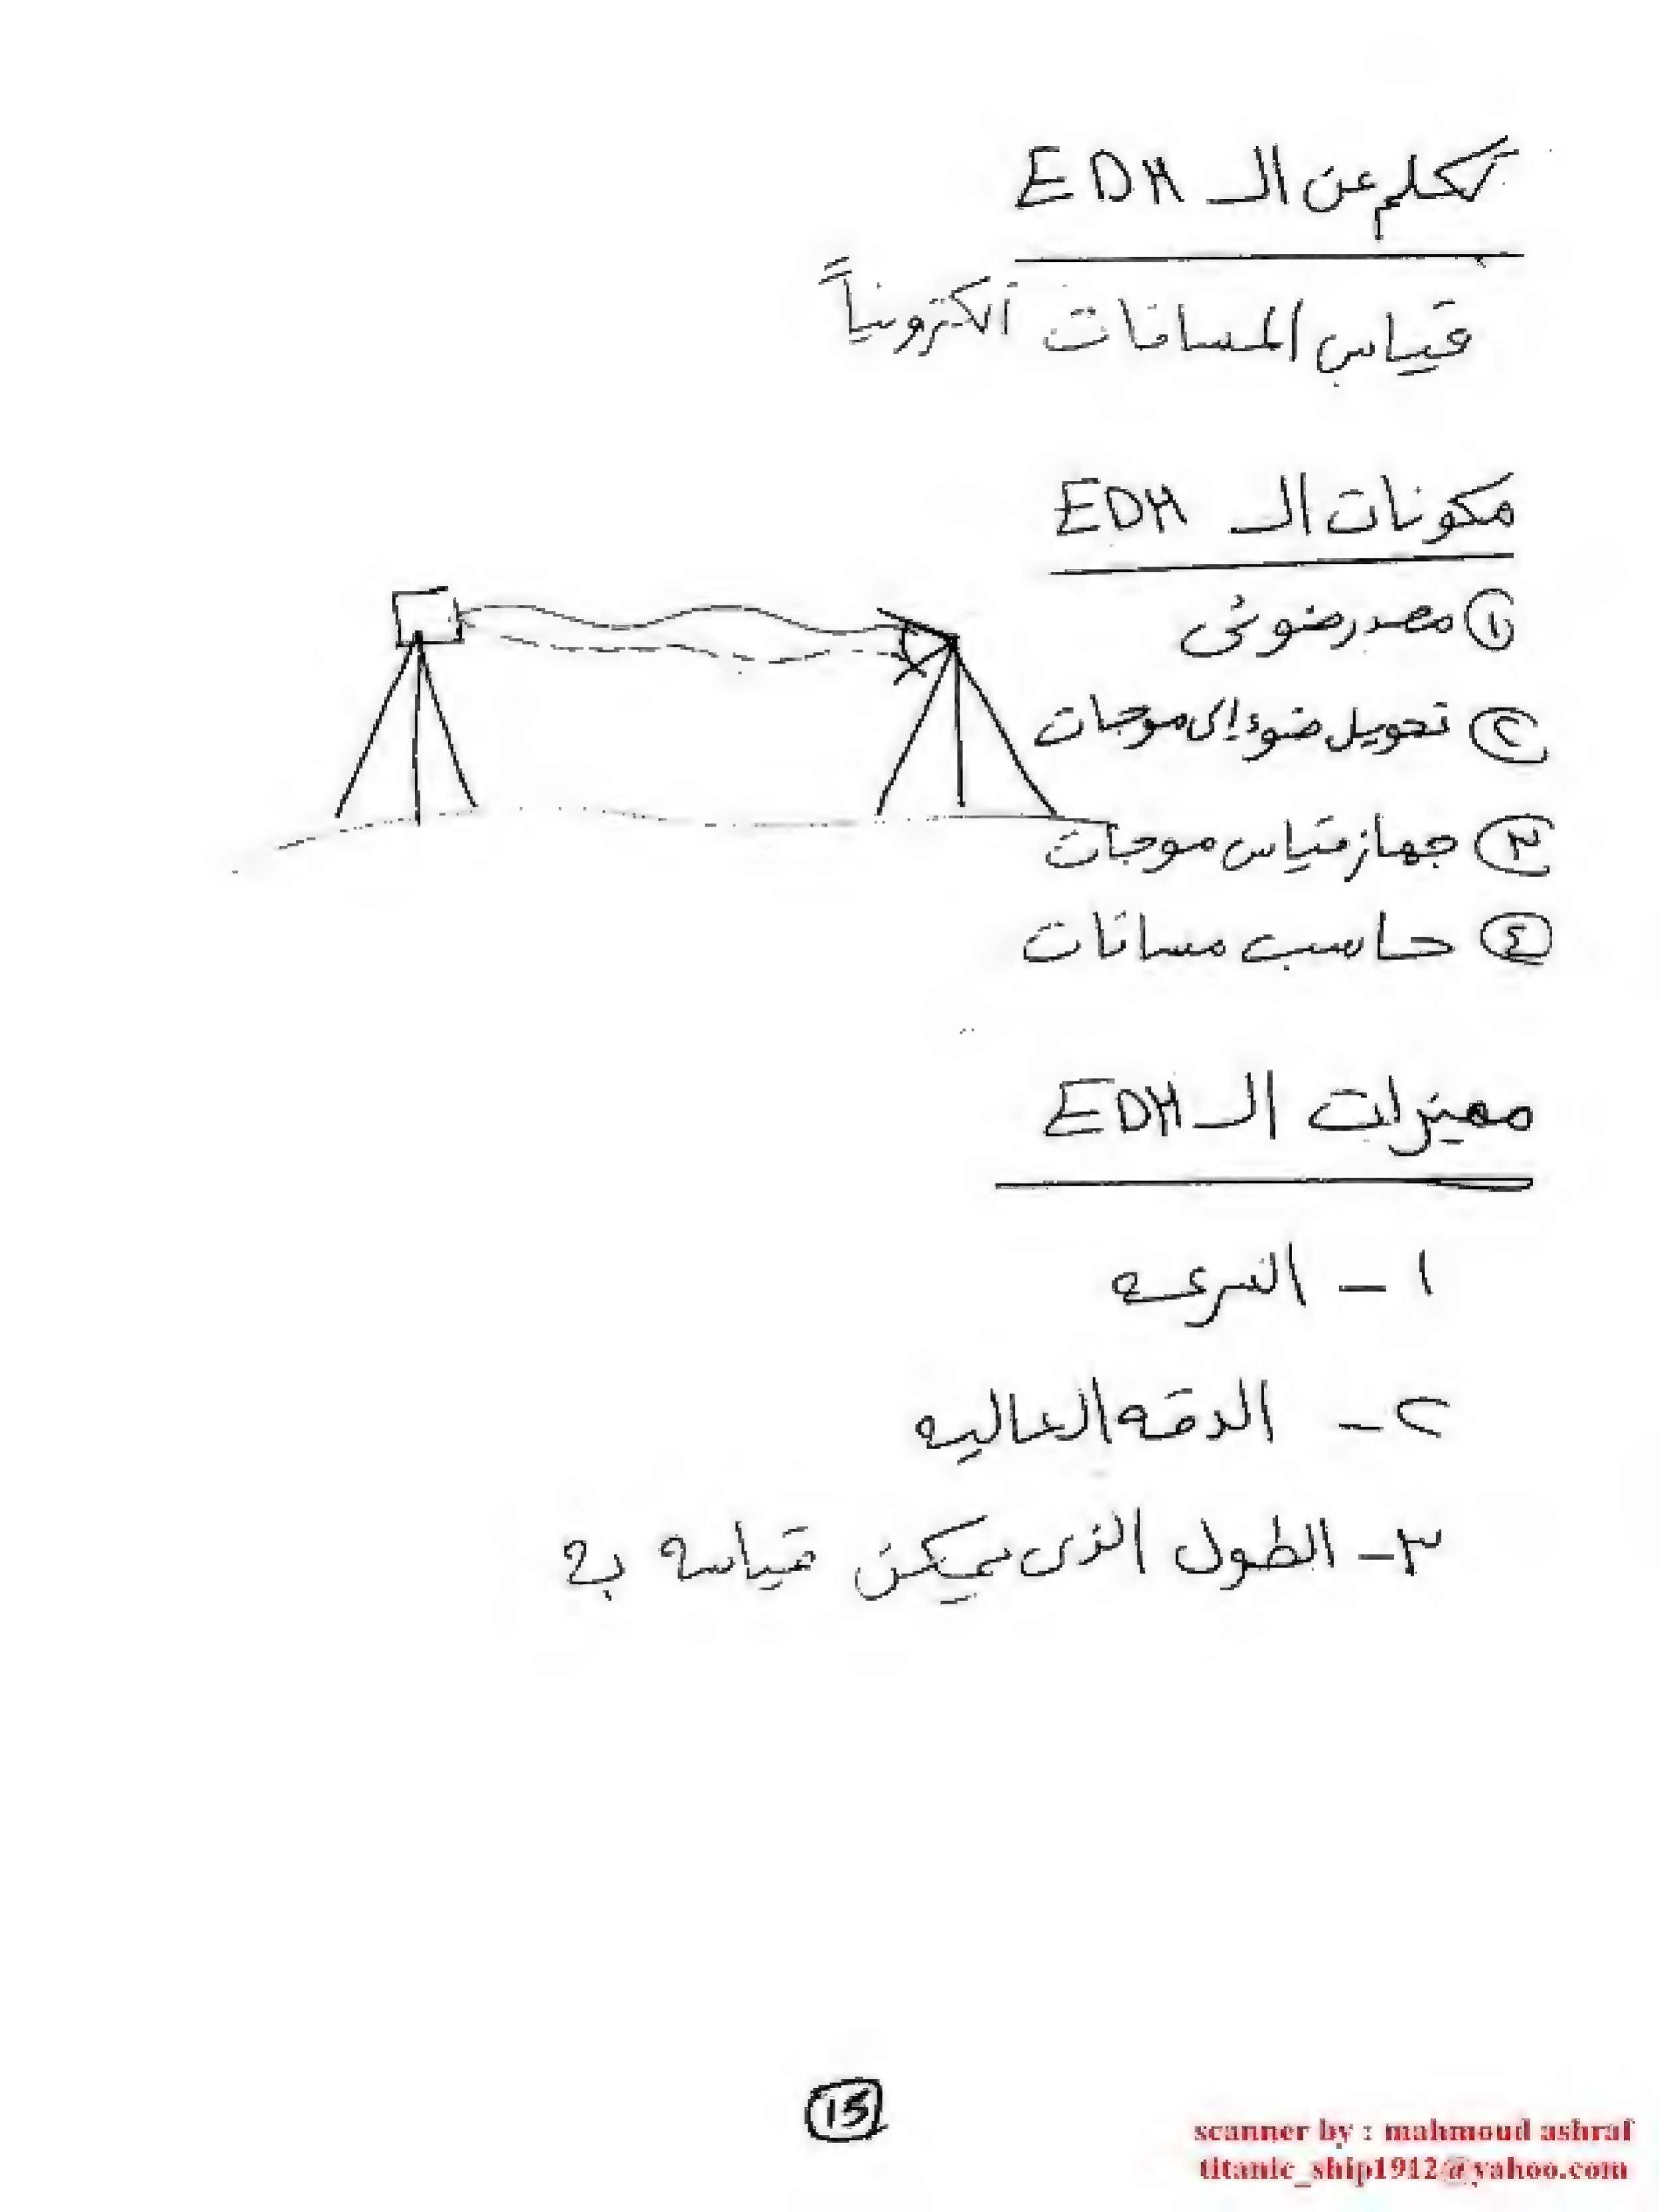 تكلم عن الـ EDM
قياس المسافات الكترونياً
مكونات الـ EDM
① مصدر ضوئى
② تحويل ضوء إلى موجات
③ جهاز قياس موجات
④ حاسب مسافات
مميزات الـ EDM
١ - السرعه
٢ - الدقه العاليه
٣ - الطول الذى يمكن قياسه به
15
scanner by : mahmoud ashraf
titanic_ship1912@yahoo.com